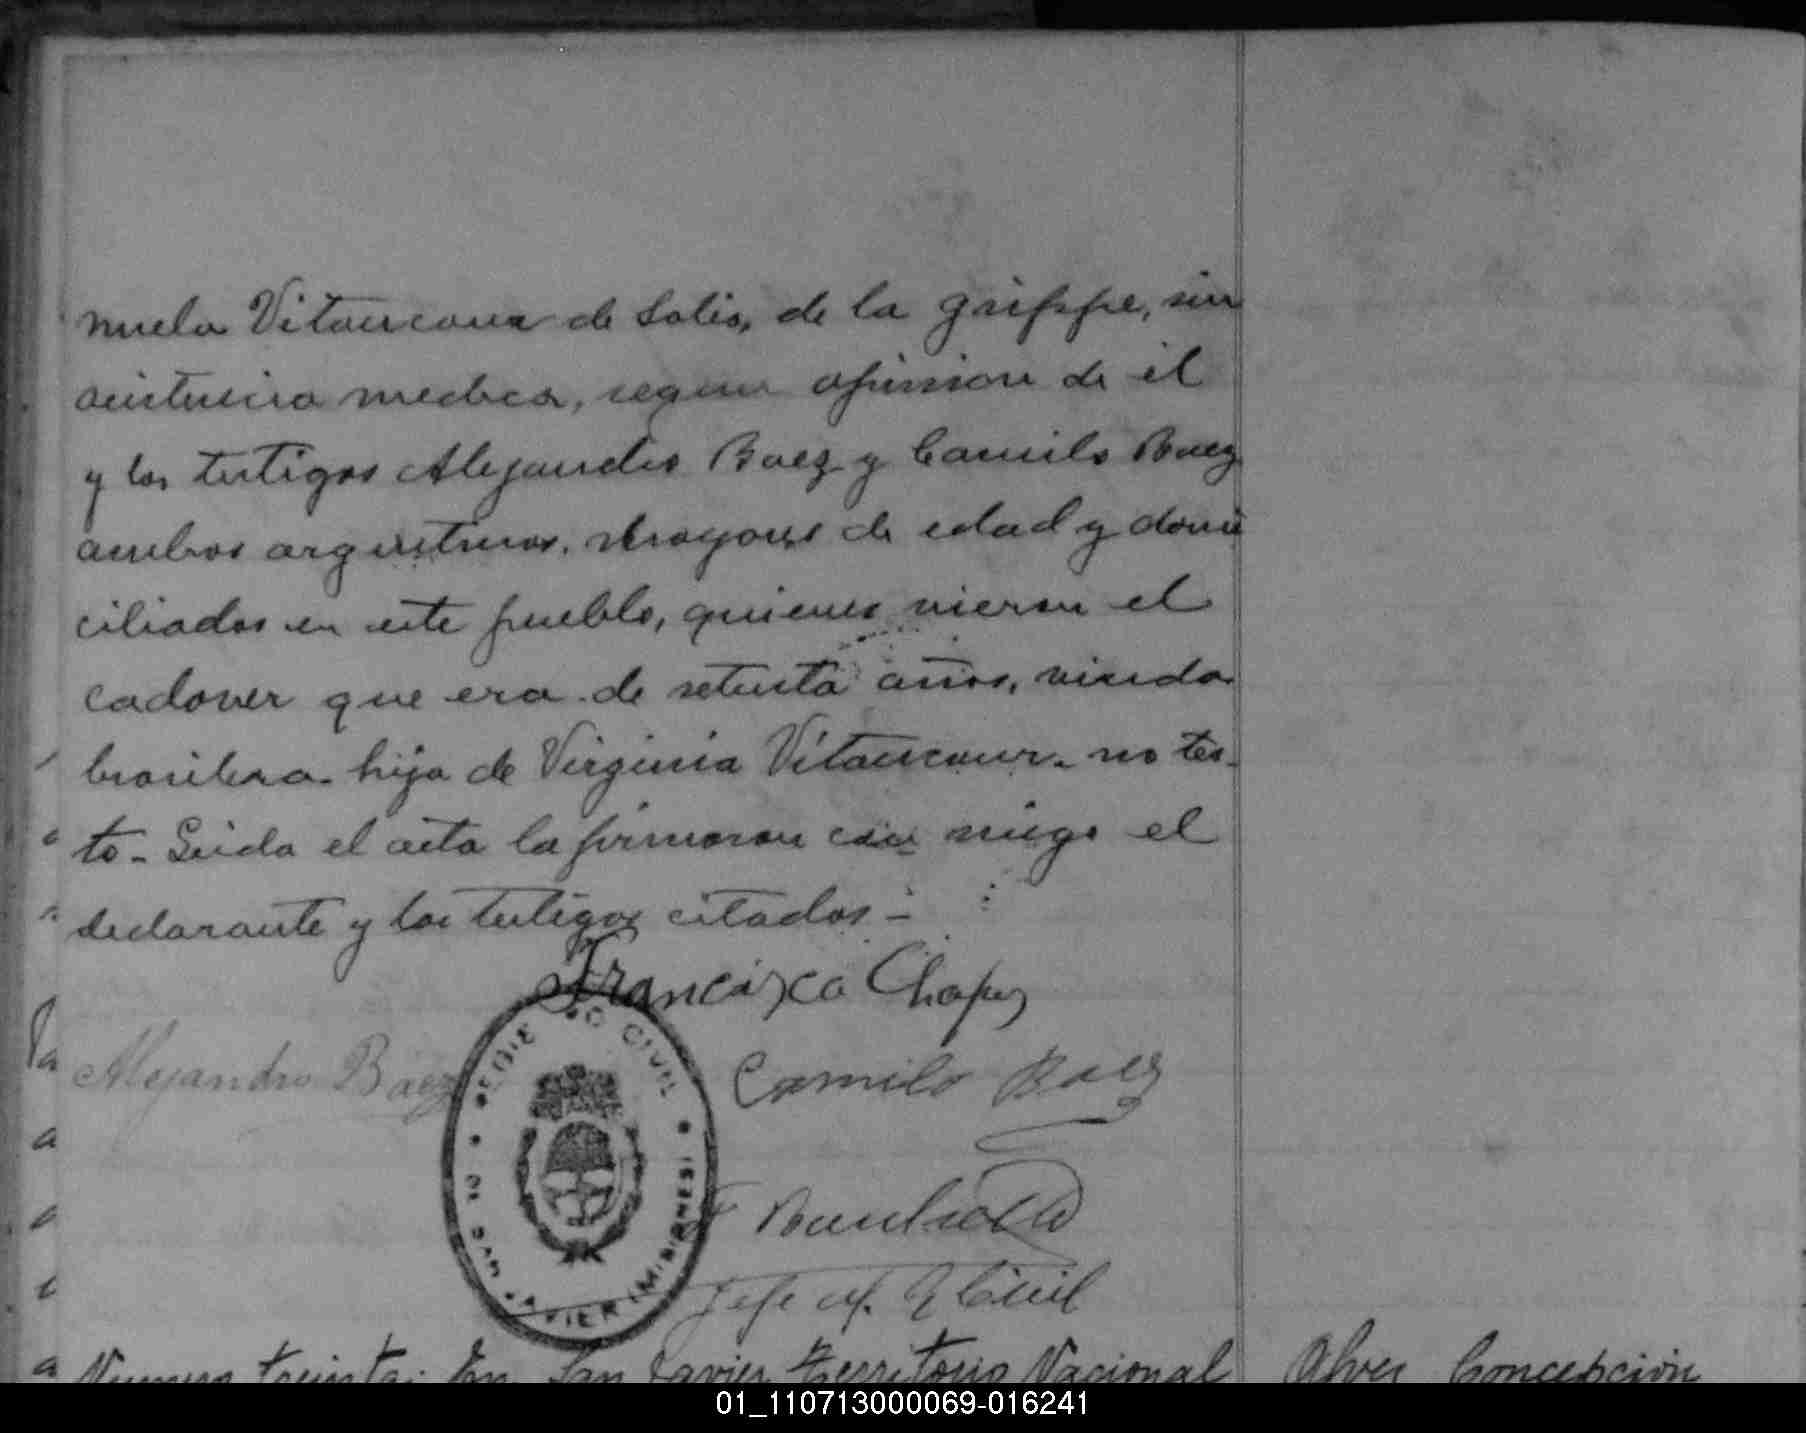 nuela Vitancour de Solis, de la grippe, sin
asistencia medica, segun opinion de él
y los testigos Alejandro Baez y Camilo Baez
ambos argentinos, mayores de edad y domi
ciliados en este pueblo, quienes vieron el
cadaver que era de setenta años, viuda
brasilera hija de Virginia Vitancour. no tes-
to - Leida el acta la firmaron con migo el
declarante y los testigos citados -
Francisco Chapes
Alejandro Baez
Camilo Baez
REGISTRO CIVIL
DE SAN JAVIER (MISIONES)
Jefe del R Civil
Numero treinta. En San Javier Territorio Nacional
Alves Concepción
01_110713000069-016241